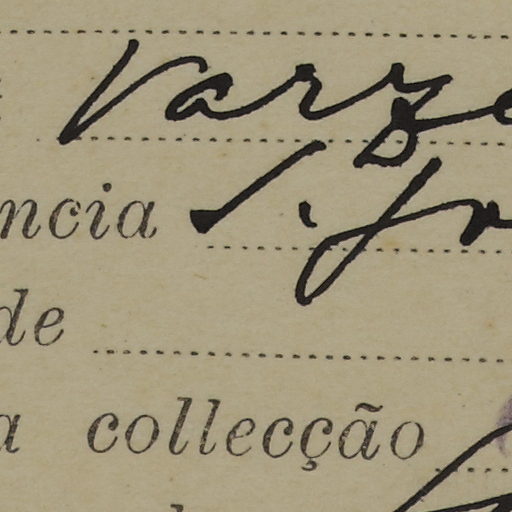 Varze
ncia S. Jo
de
a collecção